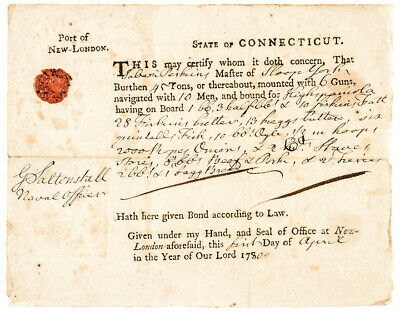 Port of
NEW-LONDON.
STATE OF CONNECTICUT.
THIS may certify whom it doth concern, That
Jabez Perkins Master of Sloop York
Burthen 45 Tons, or thereabout, mounted with 6 Guns,
navigated with 10 Men, and bound for Hispaniola
having on Board 1 3 & 10
28 Firkins butter, 13 Keggs butter,
Fish, 10 bb Oyle, hoops
2000 Ropes Onions, & Staves
Stores, Beef & Pork, & 2
2 bbs & 1 bagg Bread
G Saltonstall
Naval Officer
Hath here given Bond according to Law.
Given under my Hand, and Seal of Office at New-
London aforesaid, this first Day of April
in the Year of Our Lord 1780